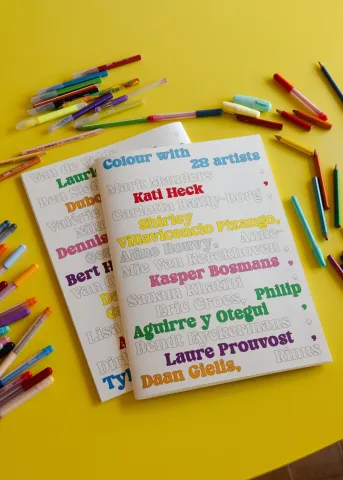 Colour with 28 artists
Mark Manders
Kati Heck
Carlotta Bailly-Borg
Shirley
Villavicencio Pizango,
Aline Bouvy, Anne-
Mie Van Kerckhoven
Kasper Bosmans
Sanam Khatibi
Eric Croes, Philip
Aguirre y Otegui
Bendt Eyckermans
Laure Prouvost
Daan Gielis, Rinus
van de
Laur
Ben S
Dubo
Valéri
Dennis
Bert H
van
Lisa
Dir
Ty